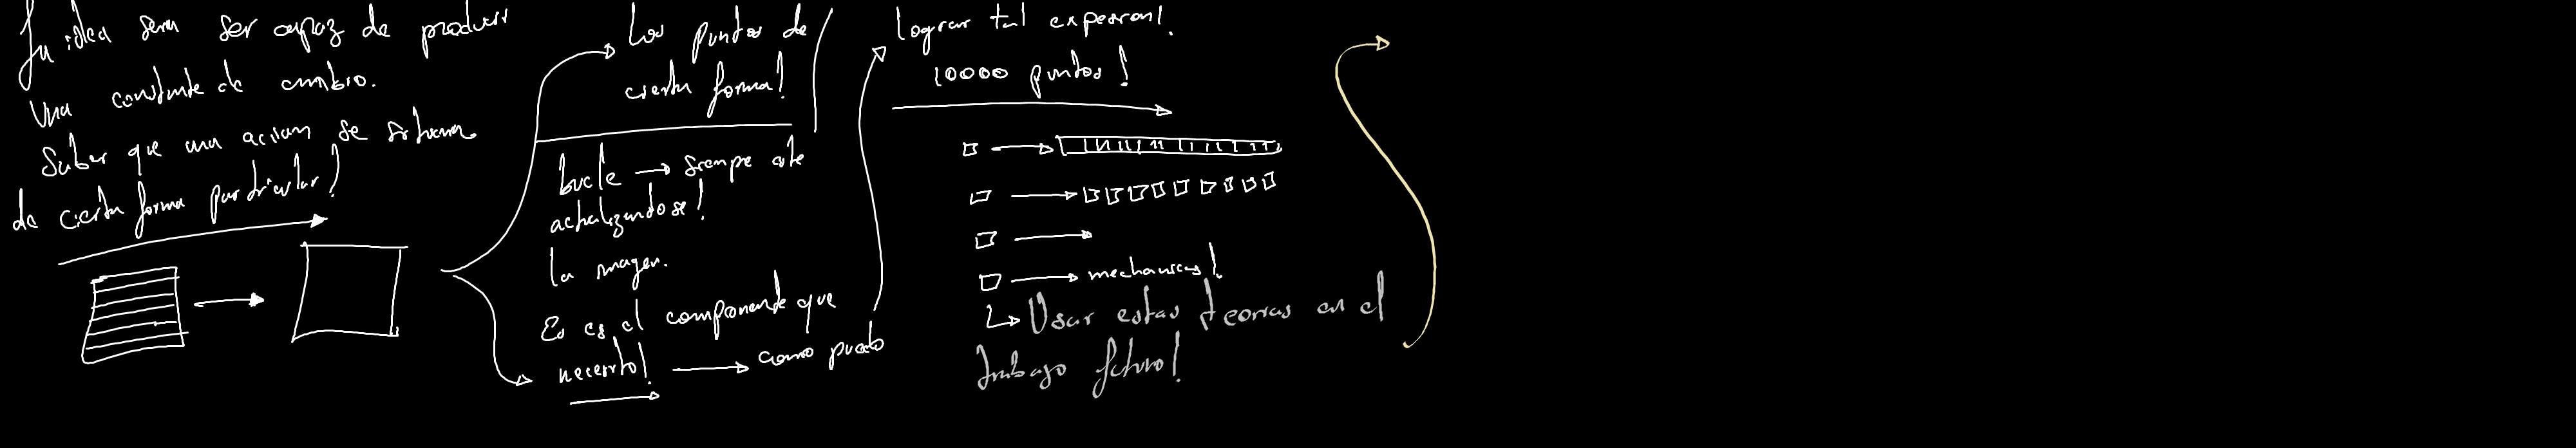 La idea sera ser capaz de producir
Una constante de cambio.
Saber que una accion se
de cierta forma particular!
Los puntos de
cierta forma!
bucle → siempre este
actualizandose!
la imagen.
Es es el componente que
necesito! → como puedo
lograr tal
10000 puntos!
mechanics!
Usar estas teorias en el
trabajo futuro!